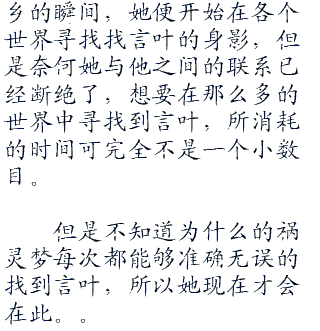 乡的瞬间，她便开始在各个
世界寻找找言叶的身影，但
是奈何她与他之间的联系已
经断绝了，想要在那么多的
世界中寻找到言叶，所消耗
的时间可完全不是一个小数
目。
但是不知道为什么的祸
灵梦每次都能够准确无误的
找到言叶，所以她现在才会
在此。。